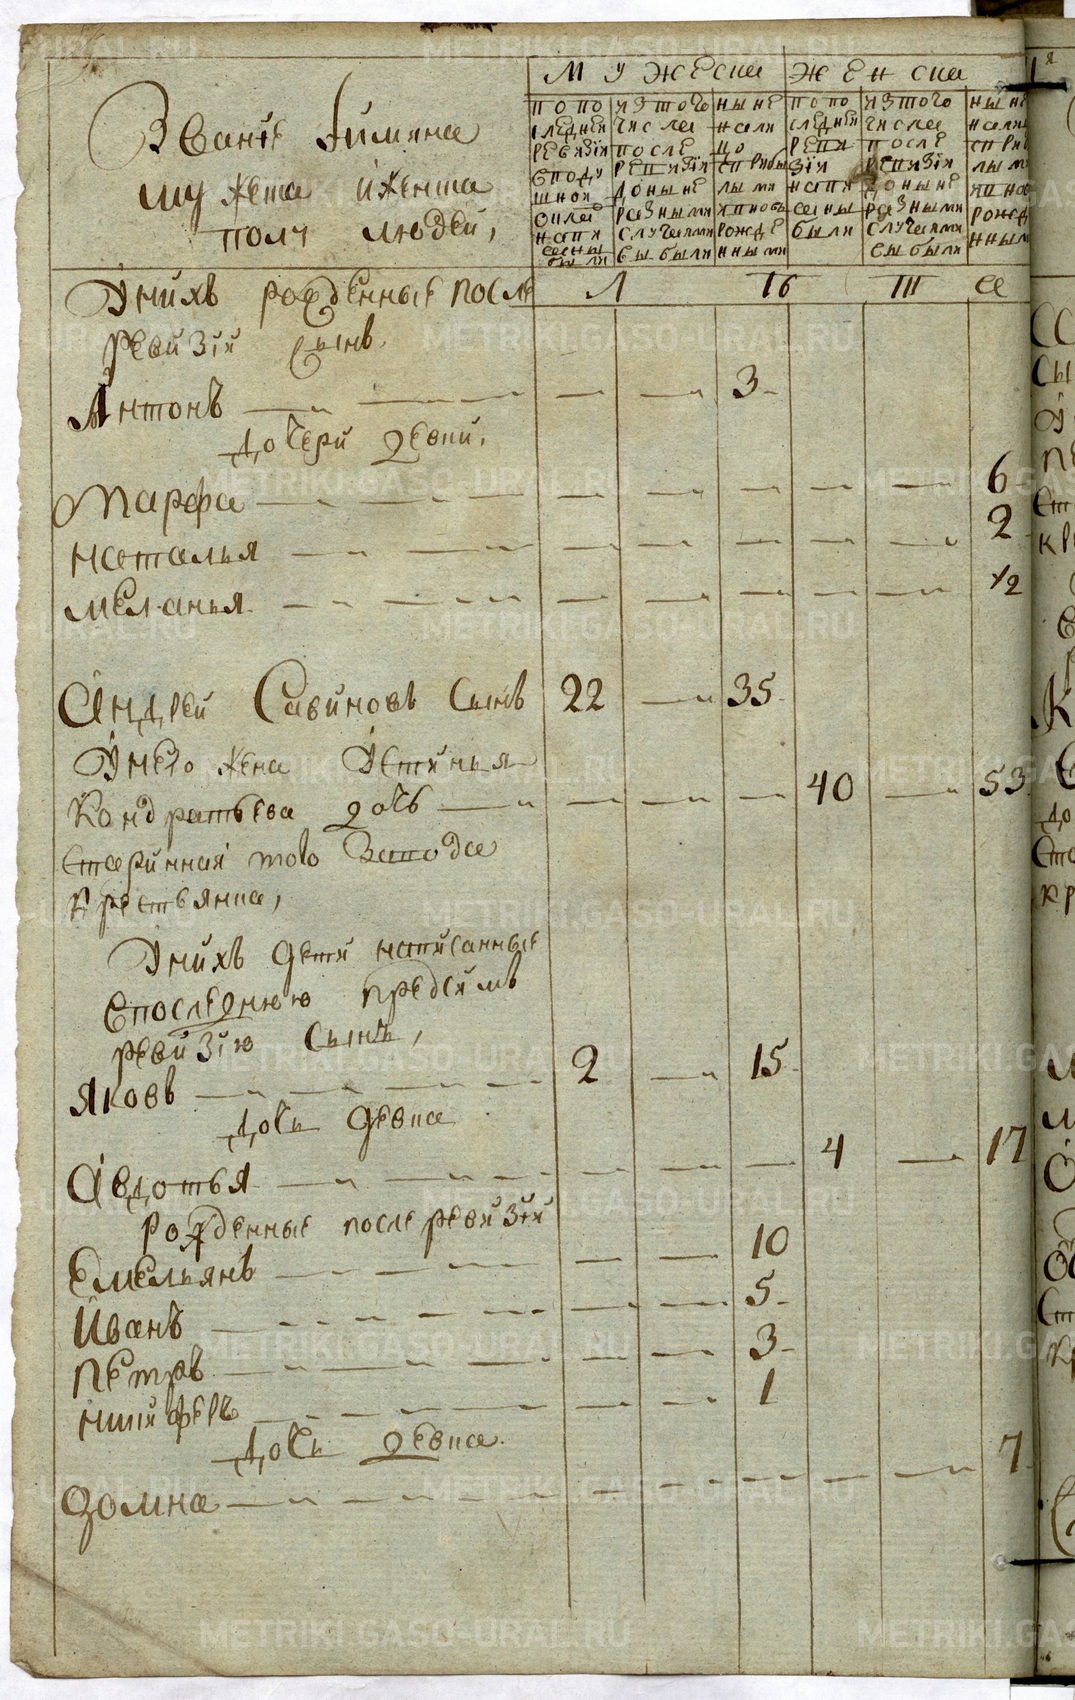 Мужеска
Женска
Званiе Имяна
мужеска иженска
полу людей,
попо
следней
ревизiи
вподу
шной
окла
напи
саны
были
изтого
числа
после
ревизiи
доныне
разными
случаями
выбыли
ныне
нали
цо
сприбы
лыми
ивновь
рожде
нными
попо
следней
реви
зiи
напи
саны
были
изтого
числа
после
ревизiи
доныне
разными
случаями
выбыли
Л
Iб
III
са
Унихъ рожденные после
ревизiи сынъ
Антонъ 3
дочери девки,
Марфа 6
Наталья 2
Меланья 1/2
Андрей Савиновъ сынъ 22 35
Унего жена Устинья
Кондратьева дочь 40 53
старинная того завода
крестьянка,
Унихъ дети написанные
впоследнюю предсимъ
ревизiю сынъ,
Яковъ 2 15
дочь девка
Авдотья 4 17
рожденные после ревизiи
Емельянъ 10
Иванъ 5
Петръ 3
Никифоръ 1
дочь девка
Домна 7
METRIKI.GASO-URAL.RU